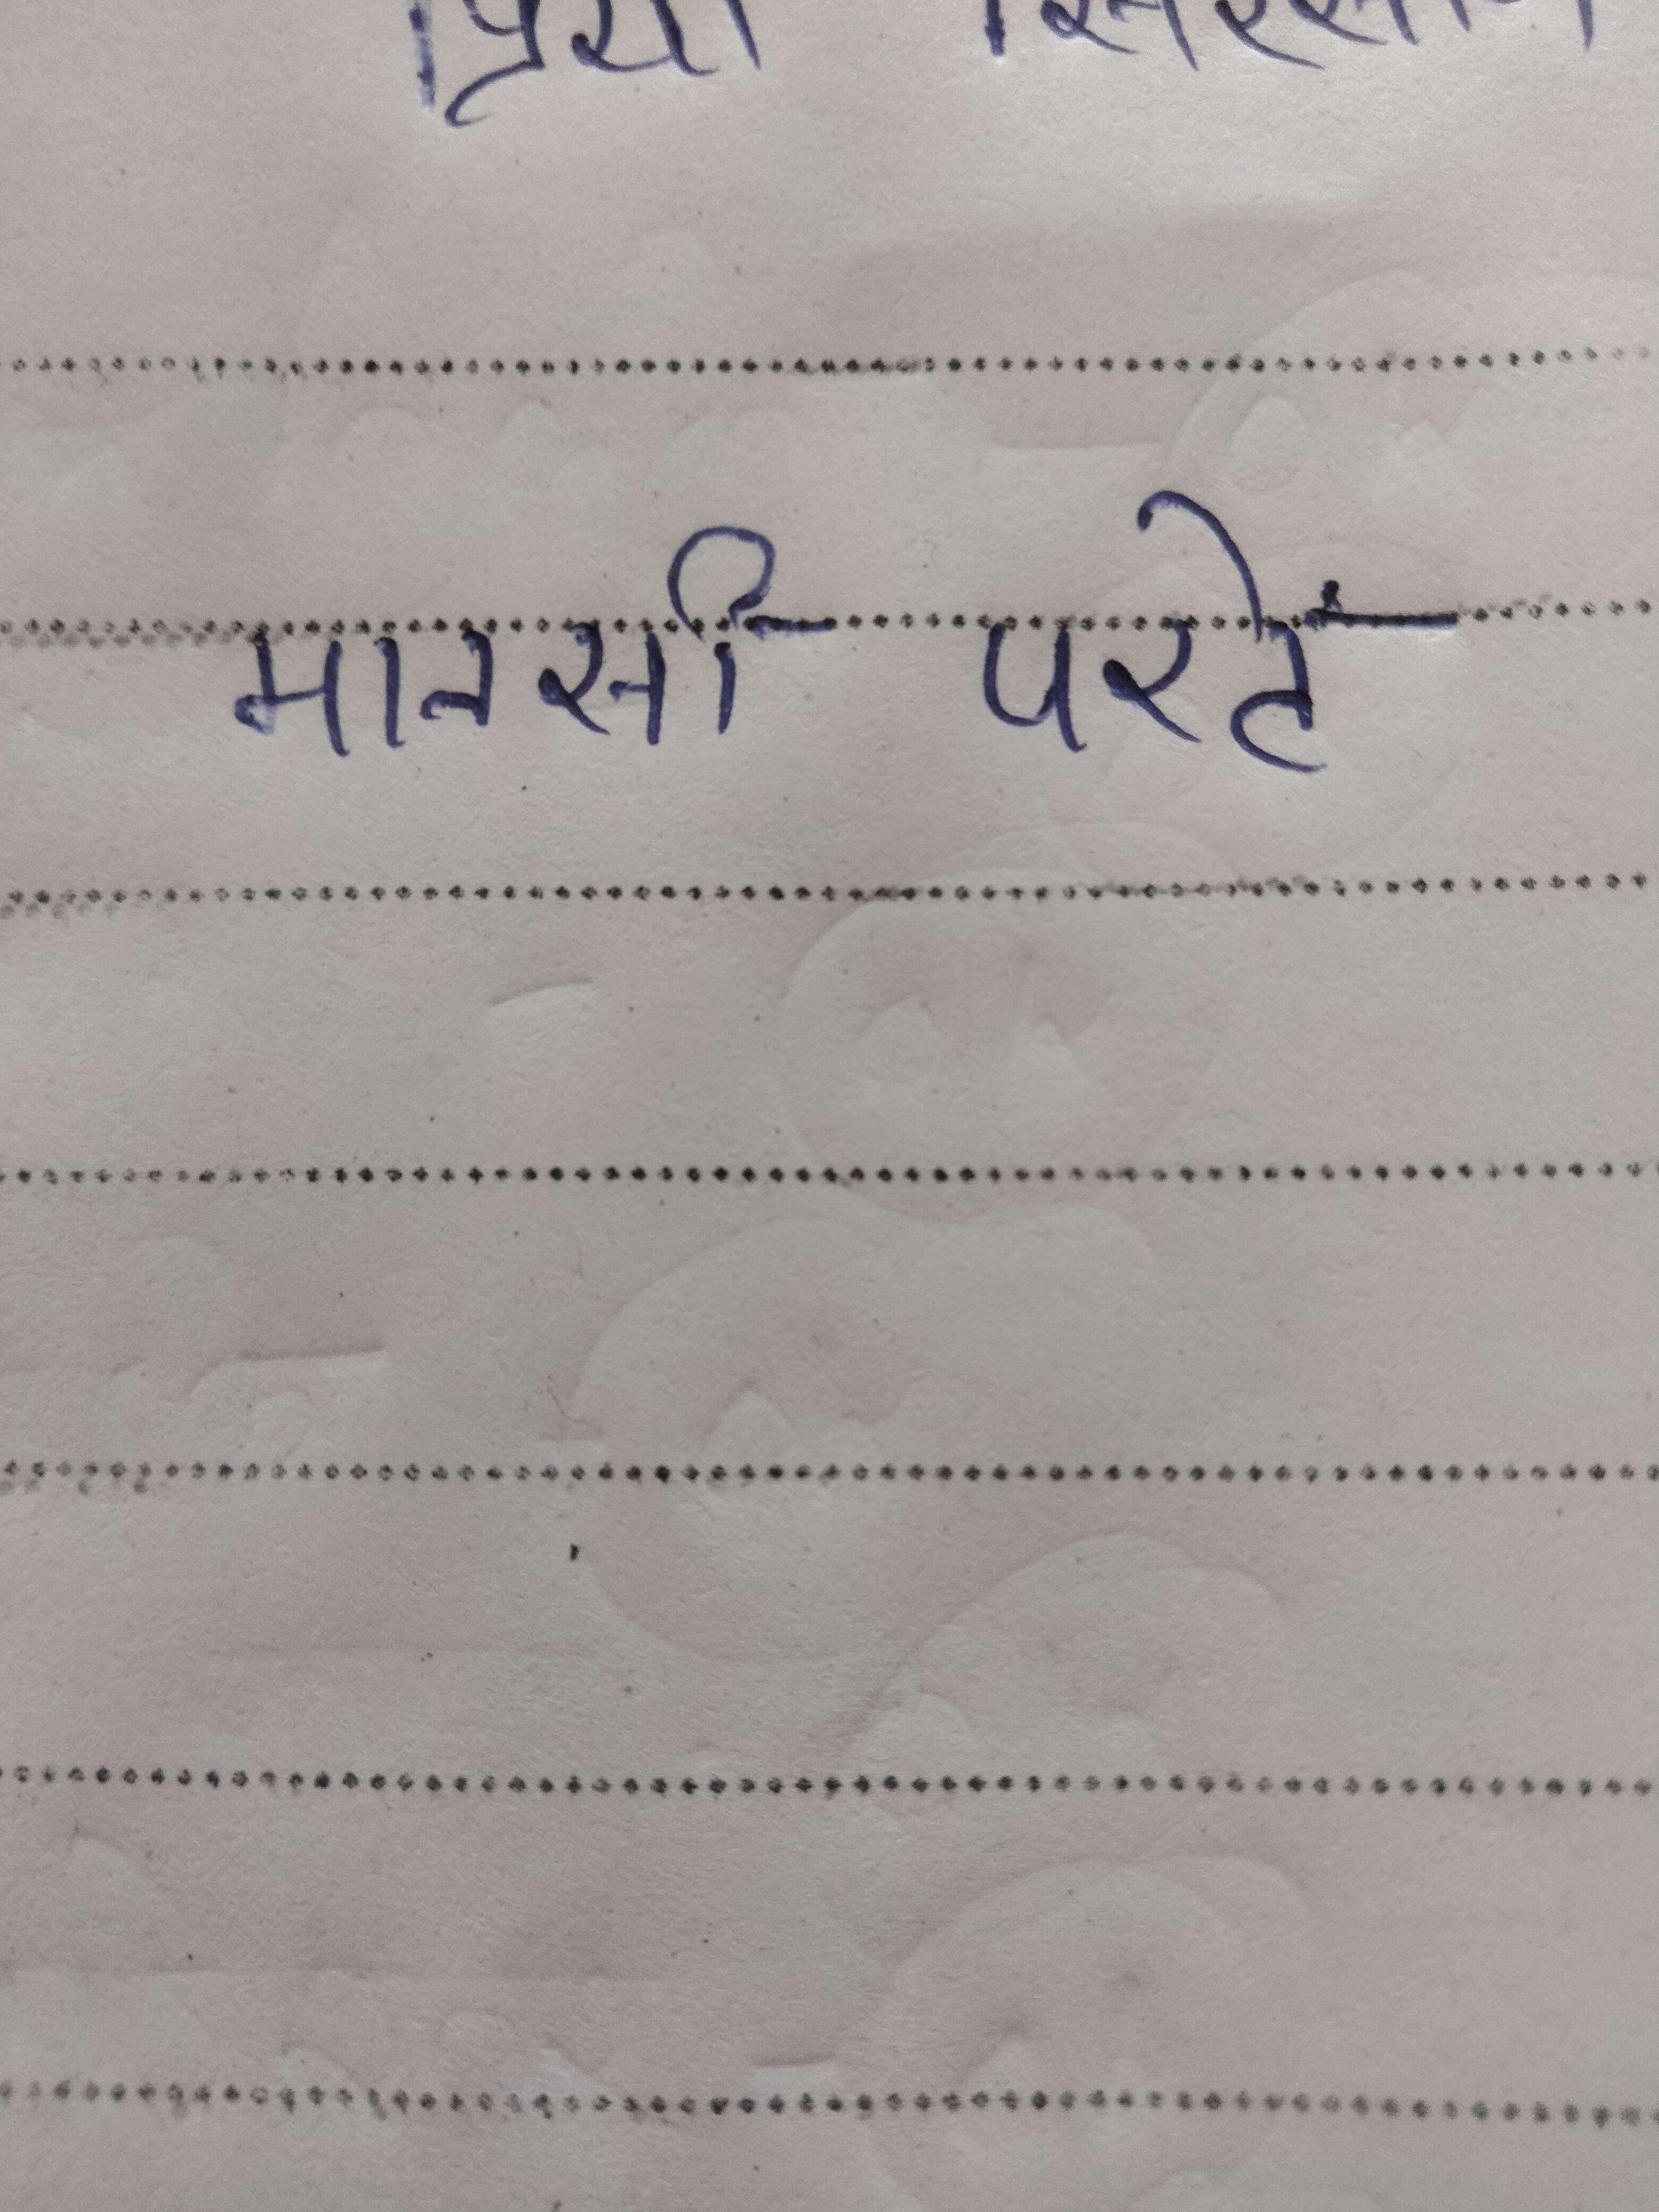 प्रिया
मानसी परते